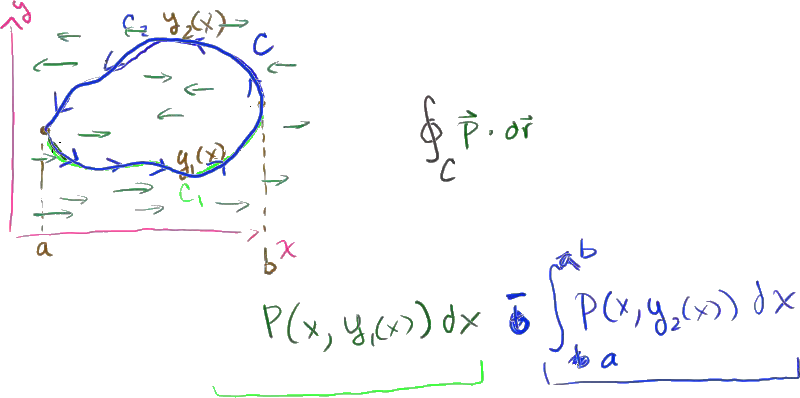 y
C₂ y₂(x)
C
y₁(x)
C₁
a b x
∮_C P⃗ · dr⃗
P(x, y₁(x)) dx - ∫_a^b P(x, y₂(x)) dx